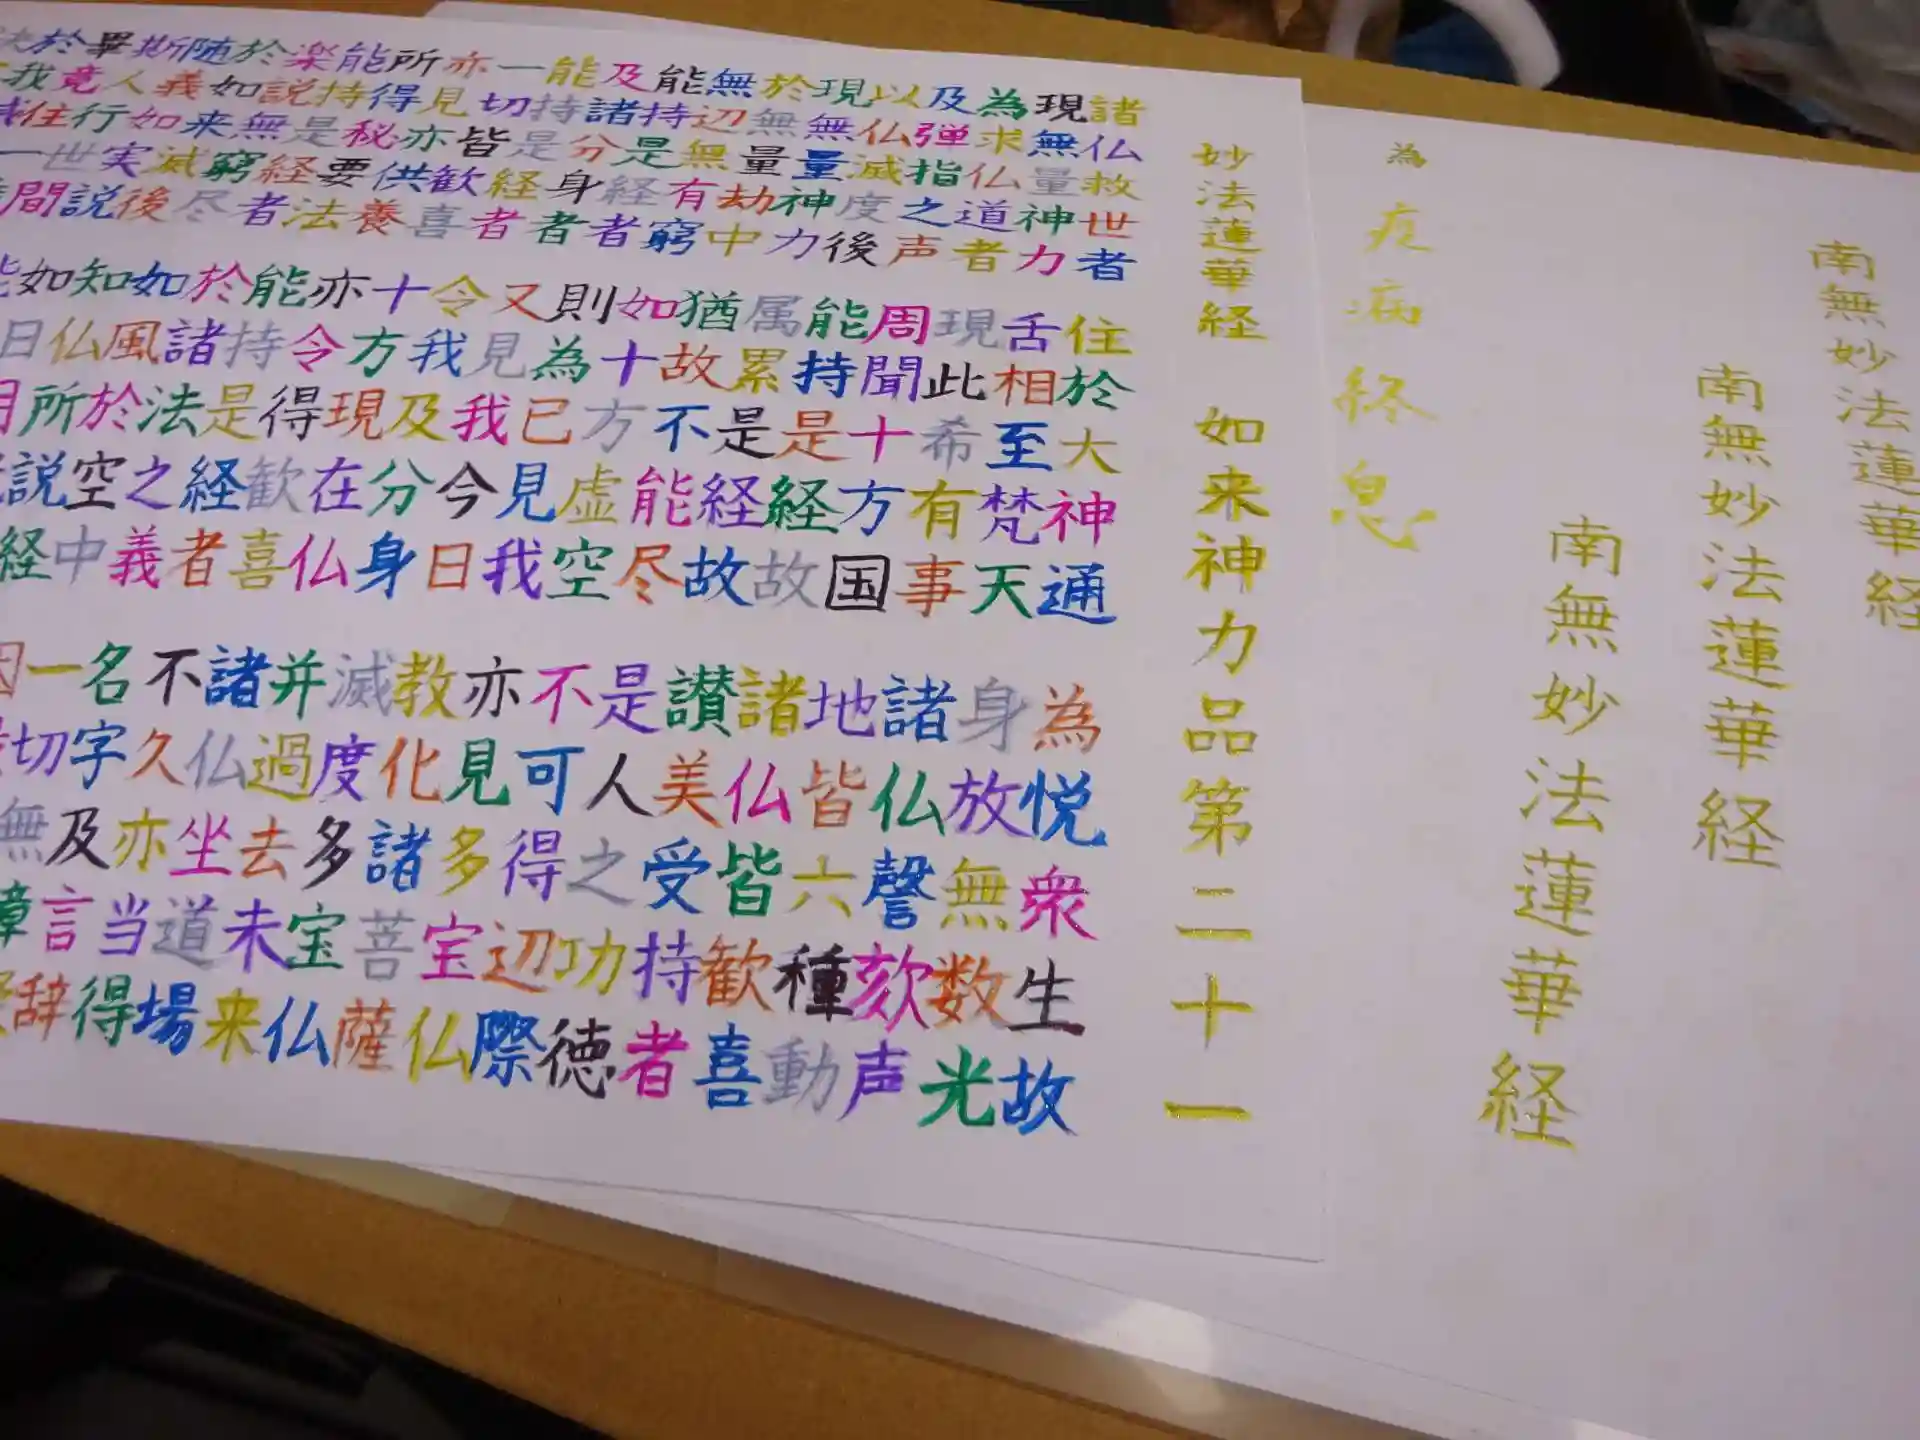 南無妙法蓮華経
南無妙法蓮華経
南無妙法蓮華経
為疫病終息
妙法蓮華経 如来神力品第二十一
諸仏救世者 住於大神通 為悦衆生故
現無量神力 舌相至梵天 身放無数光
為求仏道者 現此希有事 諸仏謦欬声
及弾指之声 周聞十方国 地皆六種動
以仏滅度後 能持是経故 諸仏皆歓喜
現無量神力 属累是経故 讃美受持者
於無量劫中 猶故不能尽 是人之功徳
無辺無有窮 如十方虚空 不可得辺際
能持是経者 則為已見我 亦見多宝仏
及諸分身者 又見我今日 教化諸菩薩
能持是経者 令我及分身 滅度多宝仏
一切皆歓喜 十方現在仏 并過去未来
亦見亦供養 亦令得歓喜 諸仏坐道場
所得秘要法 能持是経者 不久亦当得
能持是経者 於諸法之義 名字及言辞
楽説無窮尽 如風於空中 一切無障
於如来滅後 知仏所説経 因
随義如実説 如日月
斯人行世間 能
畢竟住一
於我